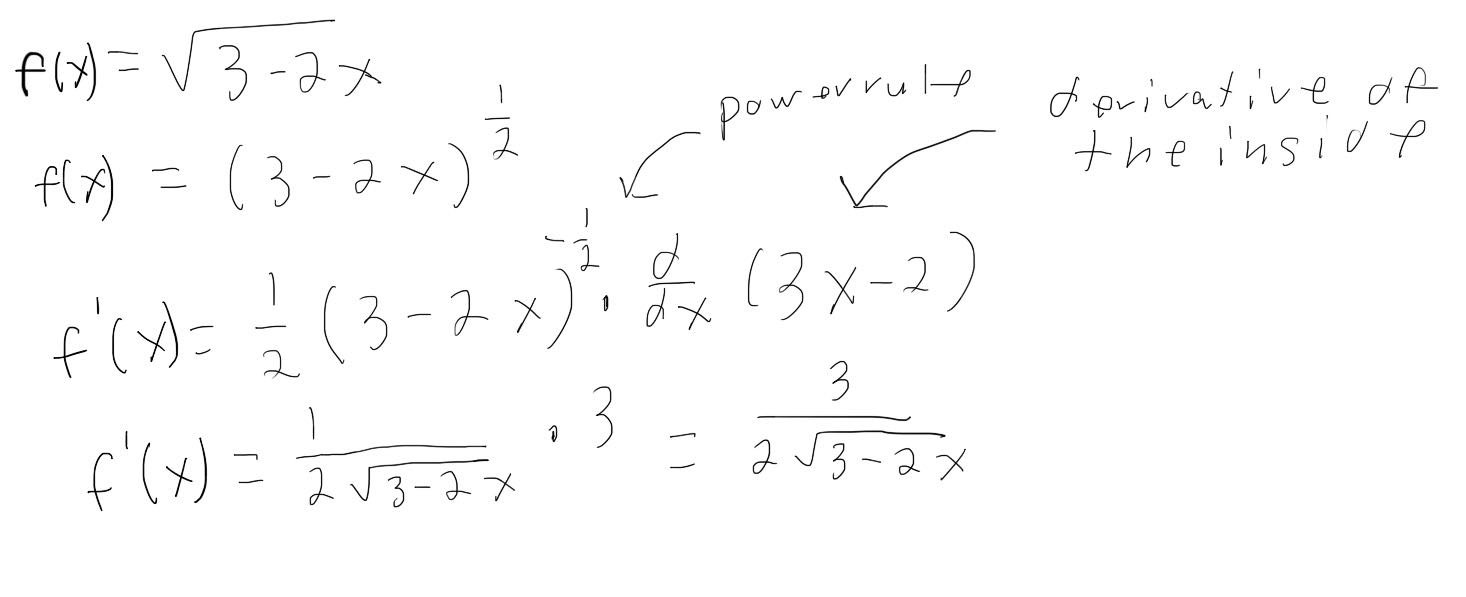 f(x) = √(3-2x)
f(x) = (3-2x)^(1/2)
power rule
derivative of
the inside
f'(x) = 1/2 (3-2x)^(-1/2) · d/dx (3x-2)
f'(x) = 1/(2√(3-2x)) · 3 = 3/(2√(3-2x))